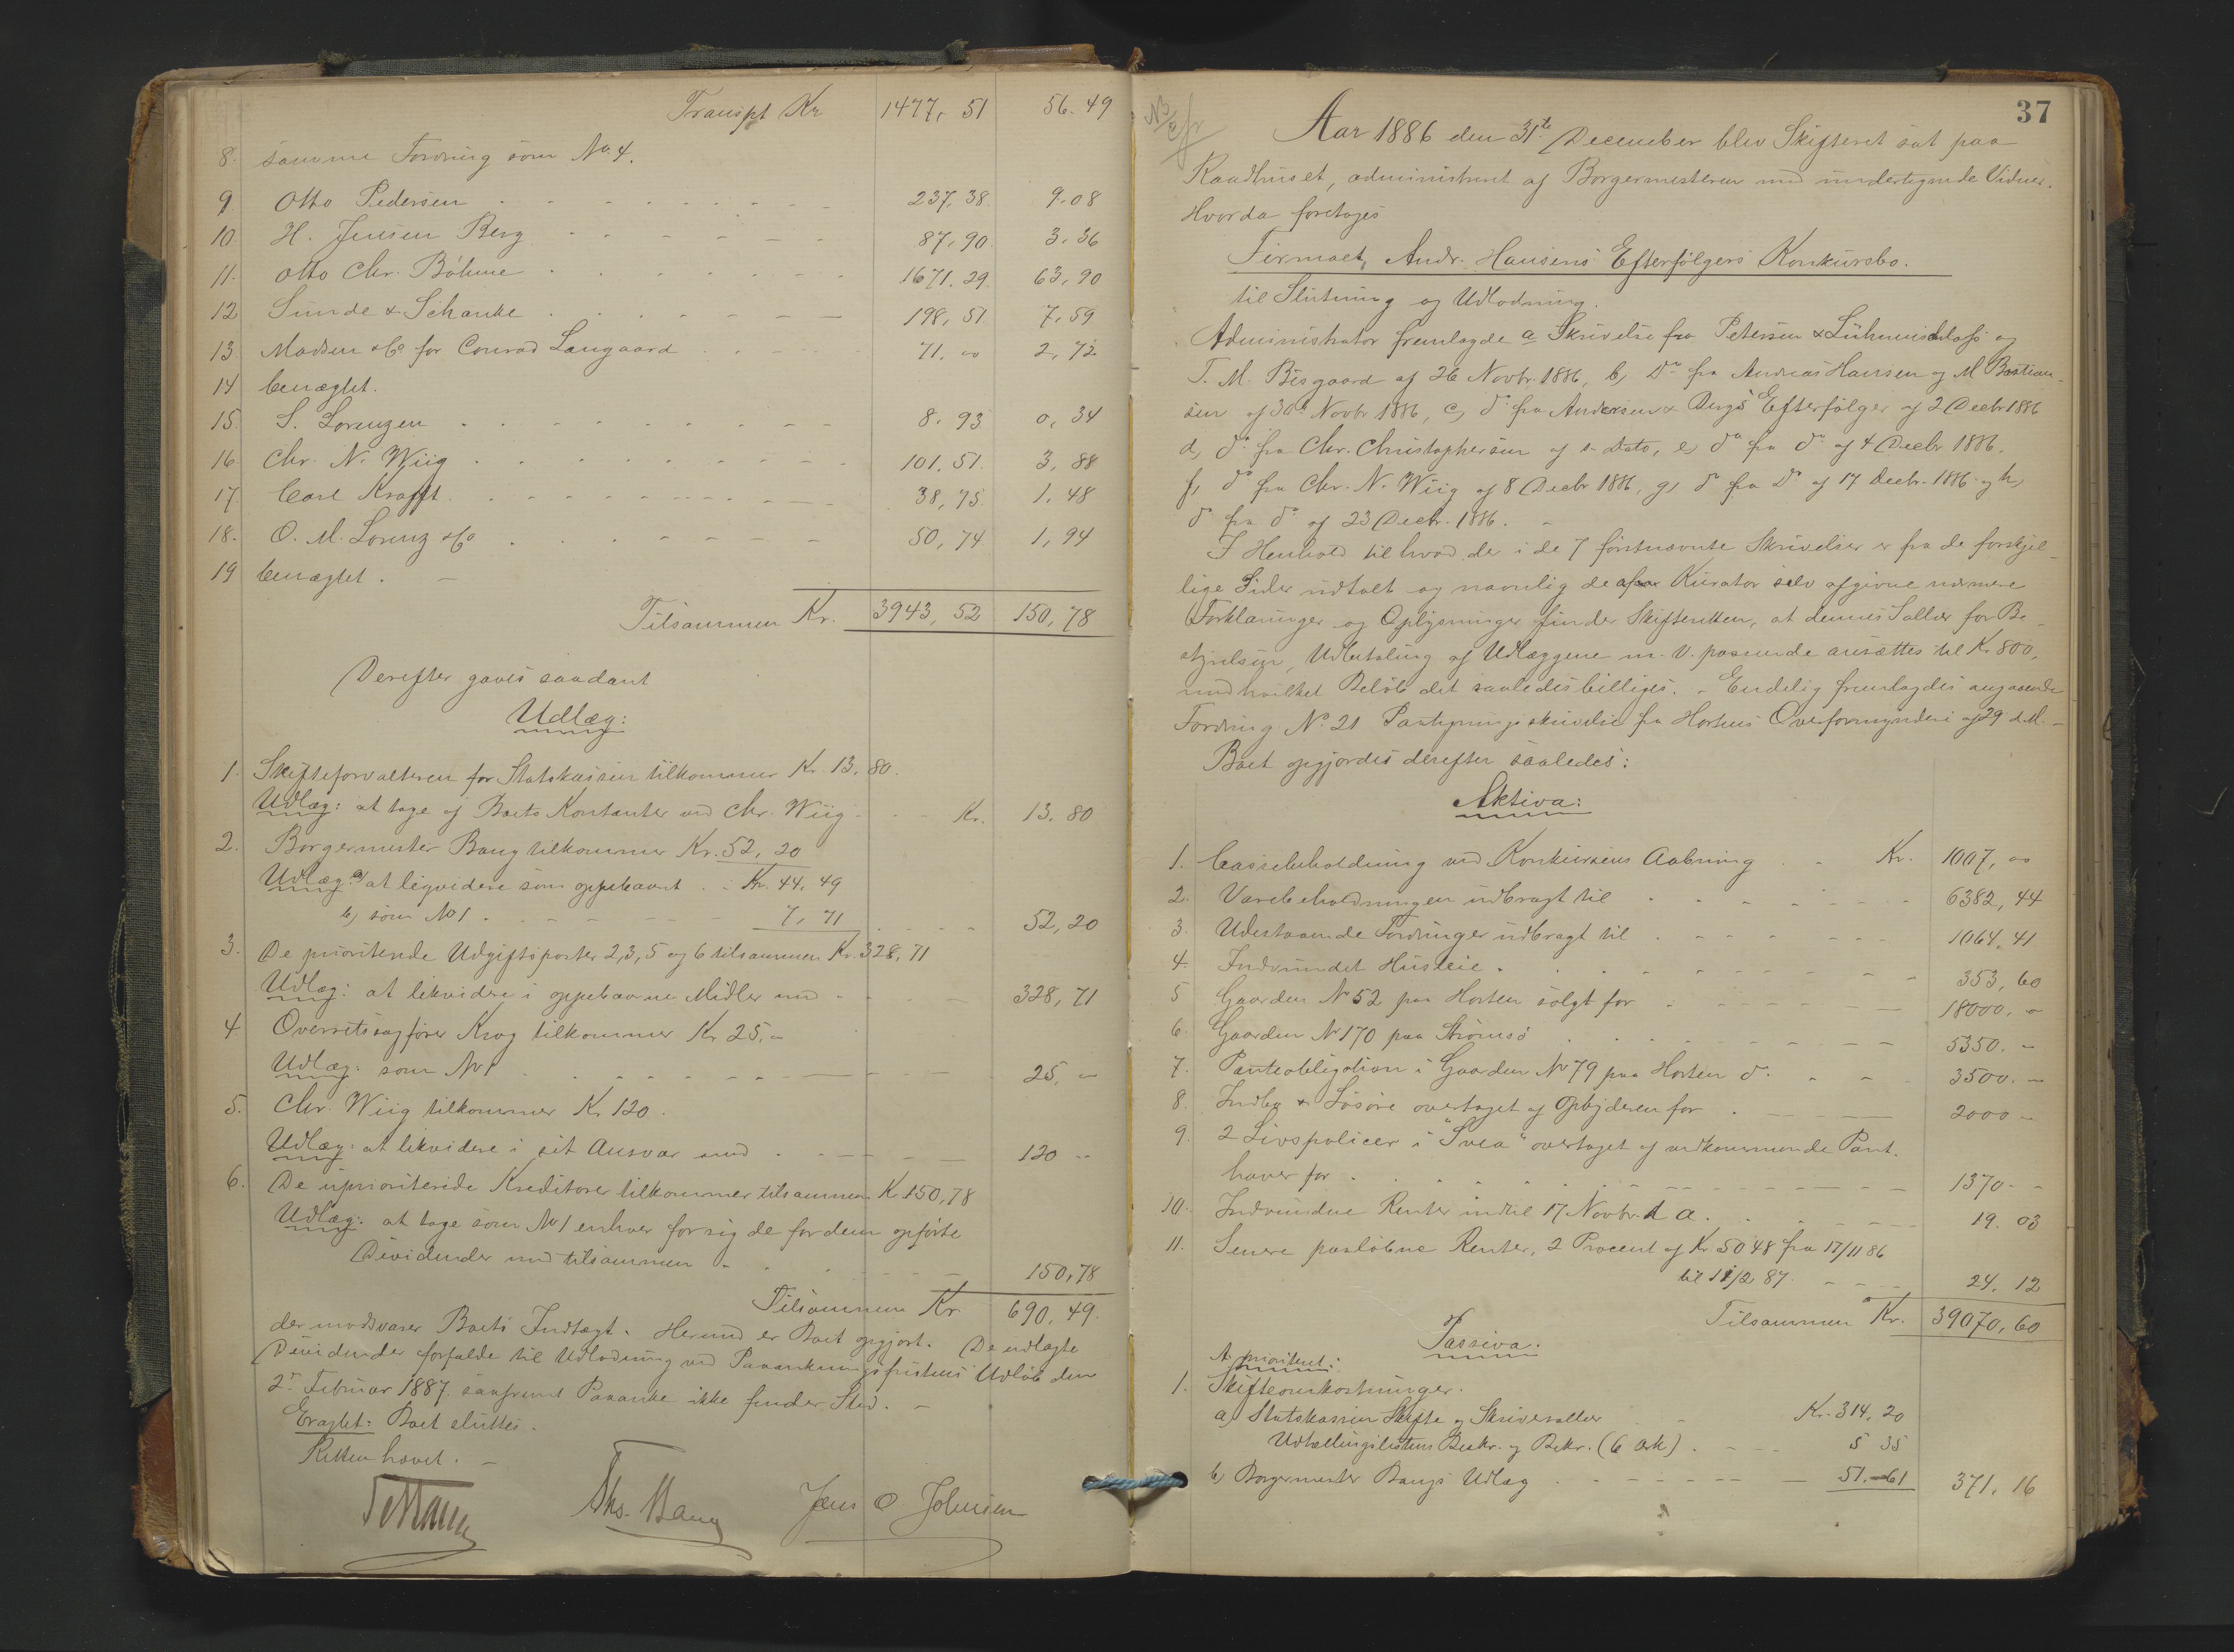 Transpt Kr 1477,51 56.49
8. samme Fordring som No. 4.
9. Otto Pedersen 237,38. 9.08
10. H. Jensen Berg 87,90. 3.36
11. Otto Chr. Böhme 1671.29. 63,90
12 Sunde & Schanke 198,51. 7,59
13. Madsen & Co for Conrad Langaard 71.00 2,72
14 benægtet.
15. S. Lorenzen 8.93 0,34
16. Chr. N. Wiig 101,51. 3,88
17. Carl Krafft 38,75. 1,48
18. O. M. Lorenz & Co 50,74 1,94
19 benægtet.
Tilsammen Kr. 3943,52 150,78
Derefter gaves saadant
Udlæg:
1. Skifteforvalteren for Statskassen tilkommer Kr. 13,80.
Udlæg: at tage af Boets Kontanter ved Chr. Wiig Kr. 13.80
2. Borgermester Bang tilkommer Kr. 52,20
Udlæg: a) at liqvidere som oppebaaret Kr. 44,49
b) som No 1 7,71 52,20
3. De prioriterede Udgiftsposter 2,3,5 og 6 tilsammen Kr. 328,71
Udlæg: at likvidere i oppebaarne Midler med 328,71
4 Overretssagfører Krog tilkommer Kr 25.-
Udlæg: som No 1 25,-
5. Chr. Wiig tilkommer Kr. 120.
Udlæg: at likvidere i sit Ansvar med 120 -
6. De uprioriterede Kreditorer tilkommer tilsammen Kr. 150,78
Udlæg: at tage som No 1 enhver for sig de for dem opførte
Dividender med tilsammen 150,78
Tilsammen Kr. 690,49.
der modsvarer Boets Indtægt. Hermed er Boet opgjort. De udlagte
Dividender forfalde til Udlodning ved Paaankningsfristens Udløb den
2den Februar 1887 saafremt Paaanke ikke finder Sted. -
Eragtet: Boet sluttes.
Retten hævet. -
Ths. Bang Jens O Johnsen
37
NB cfr
Aar 1886 den 31te December blev Skifteret sat paa
Raadhuset, administreret af Borgermesteren med undertegnede Vidner.
Hvorda foretoges
Firmaet, Andr. Hansens Efterfølgers Konkursbo.
til Slutning og Udlodning.
Administrator fremlagde a Skrivelse fra Petersen & og
T. M. Bisgaard af 26 Novbr. 1886, b, Do fra Andreas Hansen og M Bastian-
sen af 30te Novbr 1886, c, do fra Andersen & Bergs Efterfølger af 2 Decbr 1886
d, do fra Chr. Christophersen af s. Dato, e, do fra do af 4 Decbr 1886.
f, do fra Chr. N. Wiig af 8 Decbr 1886, g, do fra Do af 17 Decbr. 1886 og h,
do fra do af 23 Decbr. 1886. -
I Henhold til hvad der i de 7 førstnævnte Skrivelser er fra de forskjel-
lige Sider udtalt og navnlig de af Kurator selv afgivne nærmere
Forklaringer og Oplysninger finder Skifteretten, at dennes Sallær for Be-
styrelsen, Udbetaling af Udlæggene m. v. passende ansættes til Kr. 800,
med hvilket Beløb det saaledes billiges. - Endelig fremlagdes angaaende
Fordring No. 21 skrivelse fra Hortens Overformynderi af 29 d.M. -
Boet opgjordes derefter saaledes:
Aktiva:
1. Cassebeholdning ved Konkursens Aabning Kr. 1007,00
2. Varebeholdningen udbragt til 6382,44
3. Udestaaende Fordringer udbragt til 1064.41
4. Indvundet Husleie 353,60
5 Gaarden No 52 paa Horten solgt for 18000.-
6. Gaarden No 170 paa Strømsø 5350.-
7. Panteobligation i Gaarden No 79 paa Horten do. 3500.-
8. Indbo & Løsøre overtaget af Opbyderen for 2000 -
9. 2 Livspolicer i "Svea" overtaget af vedkommende Pant.
haver for 1370 -
10. Indvundne Renter indtil 17 Novbr. d. a. 19.03
11. Senere paaløbne Renter, 2 Procent af Kr. 5048 fra 17/11 86
til 11/2 87. 24.12
Tilsammen Kr. 39070,60
Passiva:
A prioriteret:
1. Skifteomkostninger.
a) Statskassen Skifte og Skriversallær Kr. 314,20
Udtællingslistens Beskr. og Bekr. (6 Ark) 5 35
b, Borgermester Bangs Udlæg 51.61 371.16